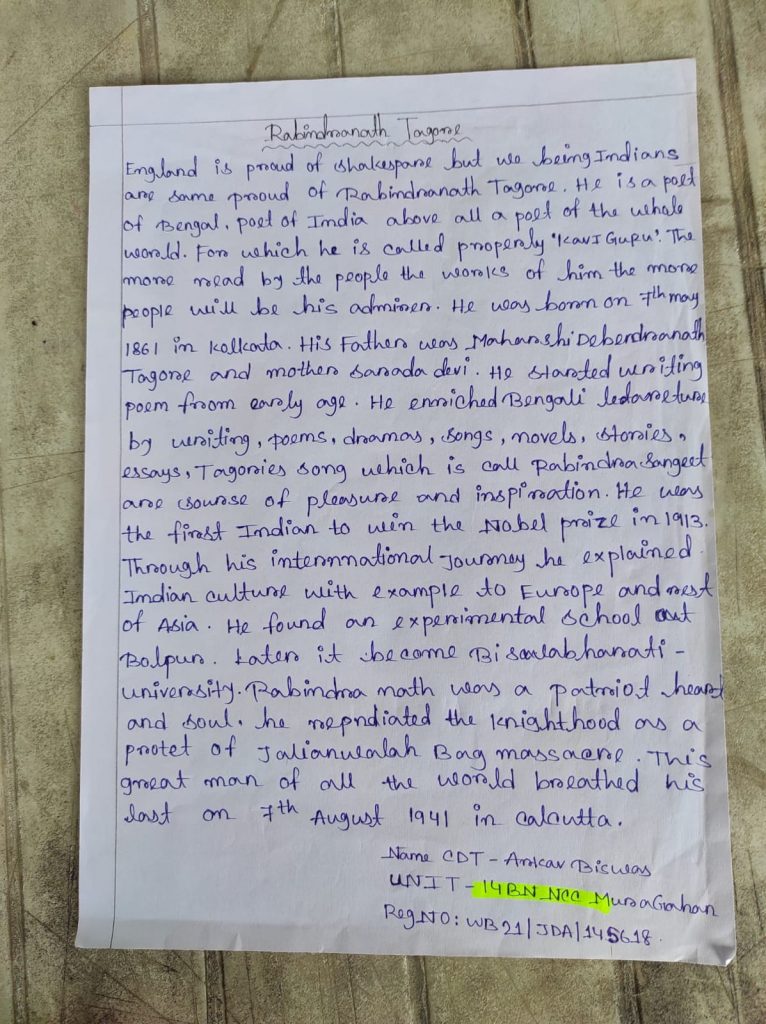 Rabindranath Tagore
England is proud of Shakespare but we being Indians
are same proud of Rabindranath Tagore. He is a poet
of Bengal, poet of India above all a poet of the whole
world. For which he is called properly 'Kavi Guru'. The
more read by the people the works of him the more
people will be his admirer. He was born on 7th may
1861 in Kolkata. His Father was Maharshi Debendranath
Tagore and mother Sarada devi. He started writing
poem from early age. He enriched Bengali
by writing, poems, dramas, songs, novels, stories,
essays, Tagories song which is call Rabindra Sangeet
are sourse of pleasure and inspiration. He was
the first Indian to win the Nobel prize in 1913.
Through his internnational Journey he explained
Indian culture with example to Europe and rest
of Asia. He found an experimental school at
Bolpur. Later it become -
university. Rabindra nath was a patriot heart
and soul. he repndiated the Knighthood as a
protet of Jalianwalah Bag massacre. This
great man of all the world breathed his
last on 7th August 1941 in calcutta.
Name CDT - Ankar Biswas
UNIT - 14 BN NCC
Reg NO: WB21/JDA/145618.